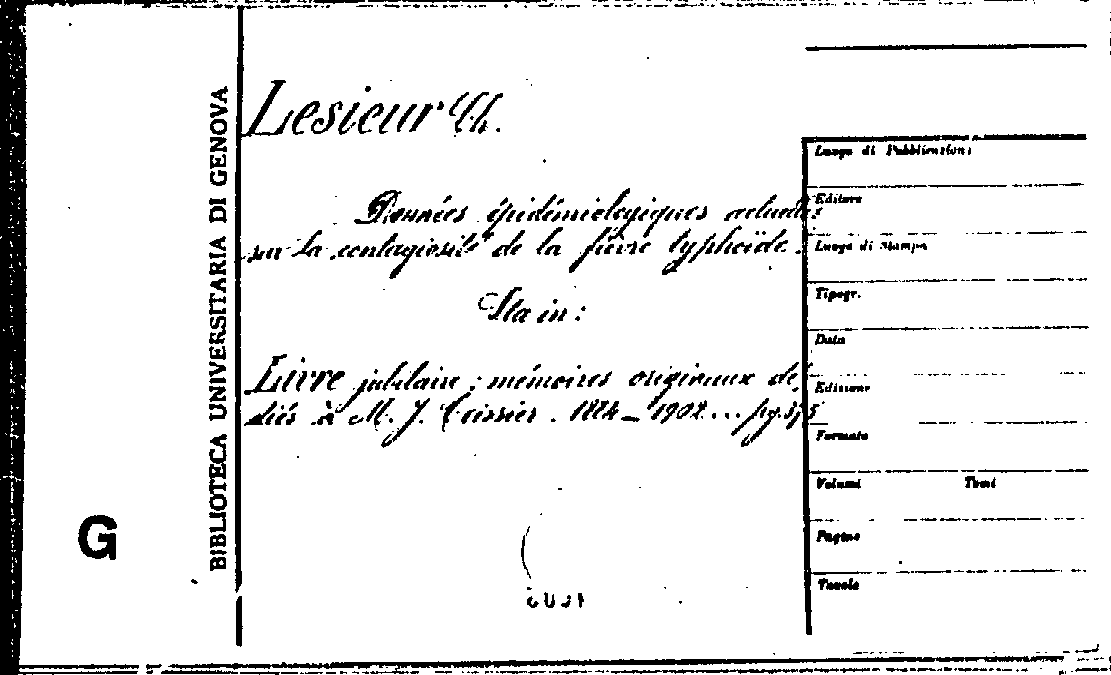 BIBLIOTECA UNIVERSITARIA DI GENOVA
G
Lesieur Ch.
Données épidémiologiques actuelles
sur la contagiosité de la fièvre typhoïde.
Sta in:
Livre jubilaire; mémoires originaux dé
diés à M. J. Teissier. 1884-1902... pg.
Luogo di Pubblicazione
Editore
Luogo di Stampa
Tipogr.
Data
Edizione
Formato
Volumi Tomi
Pagine
Tavole